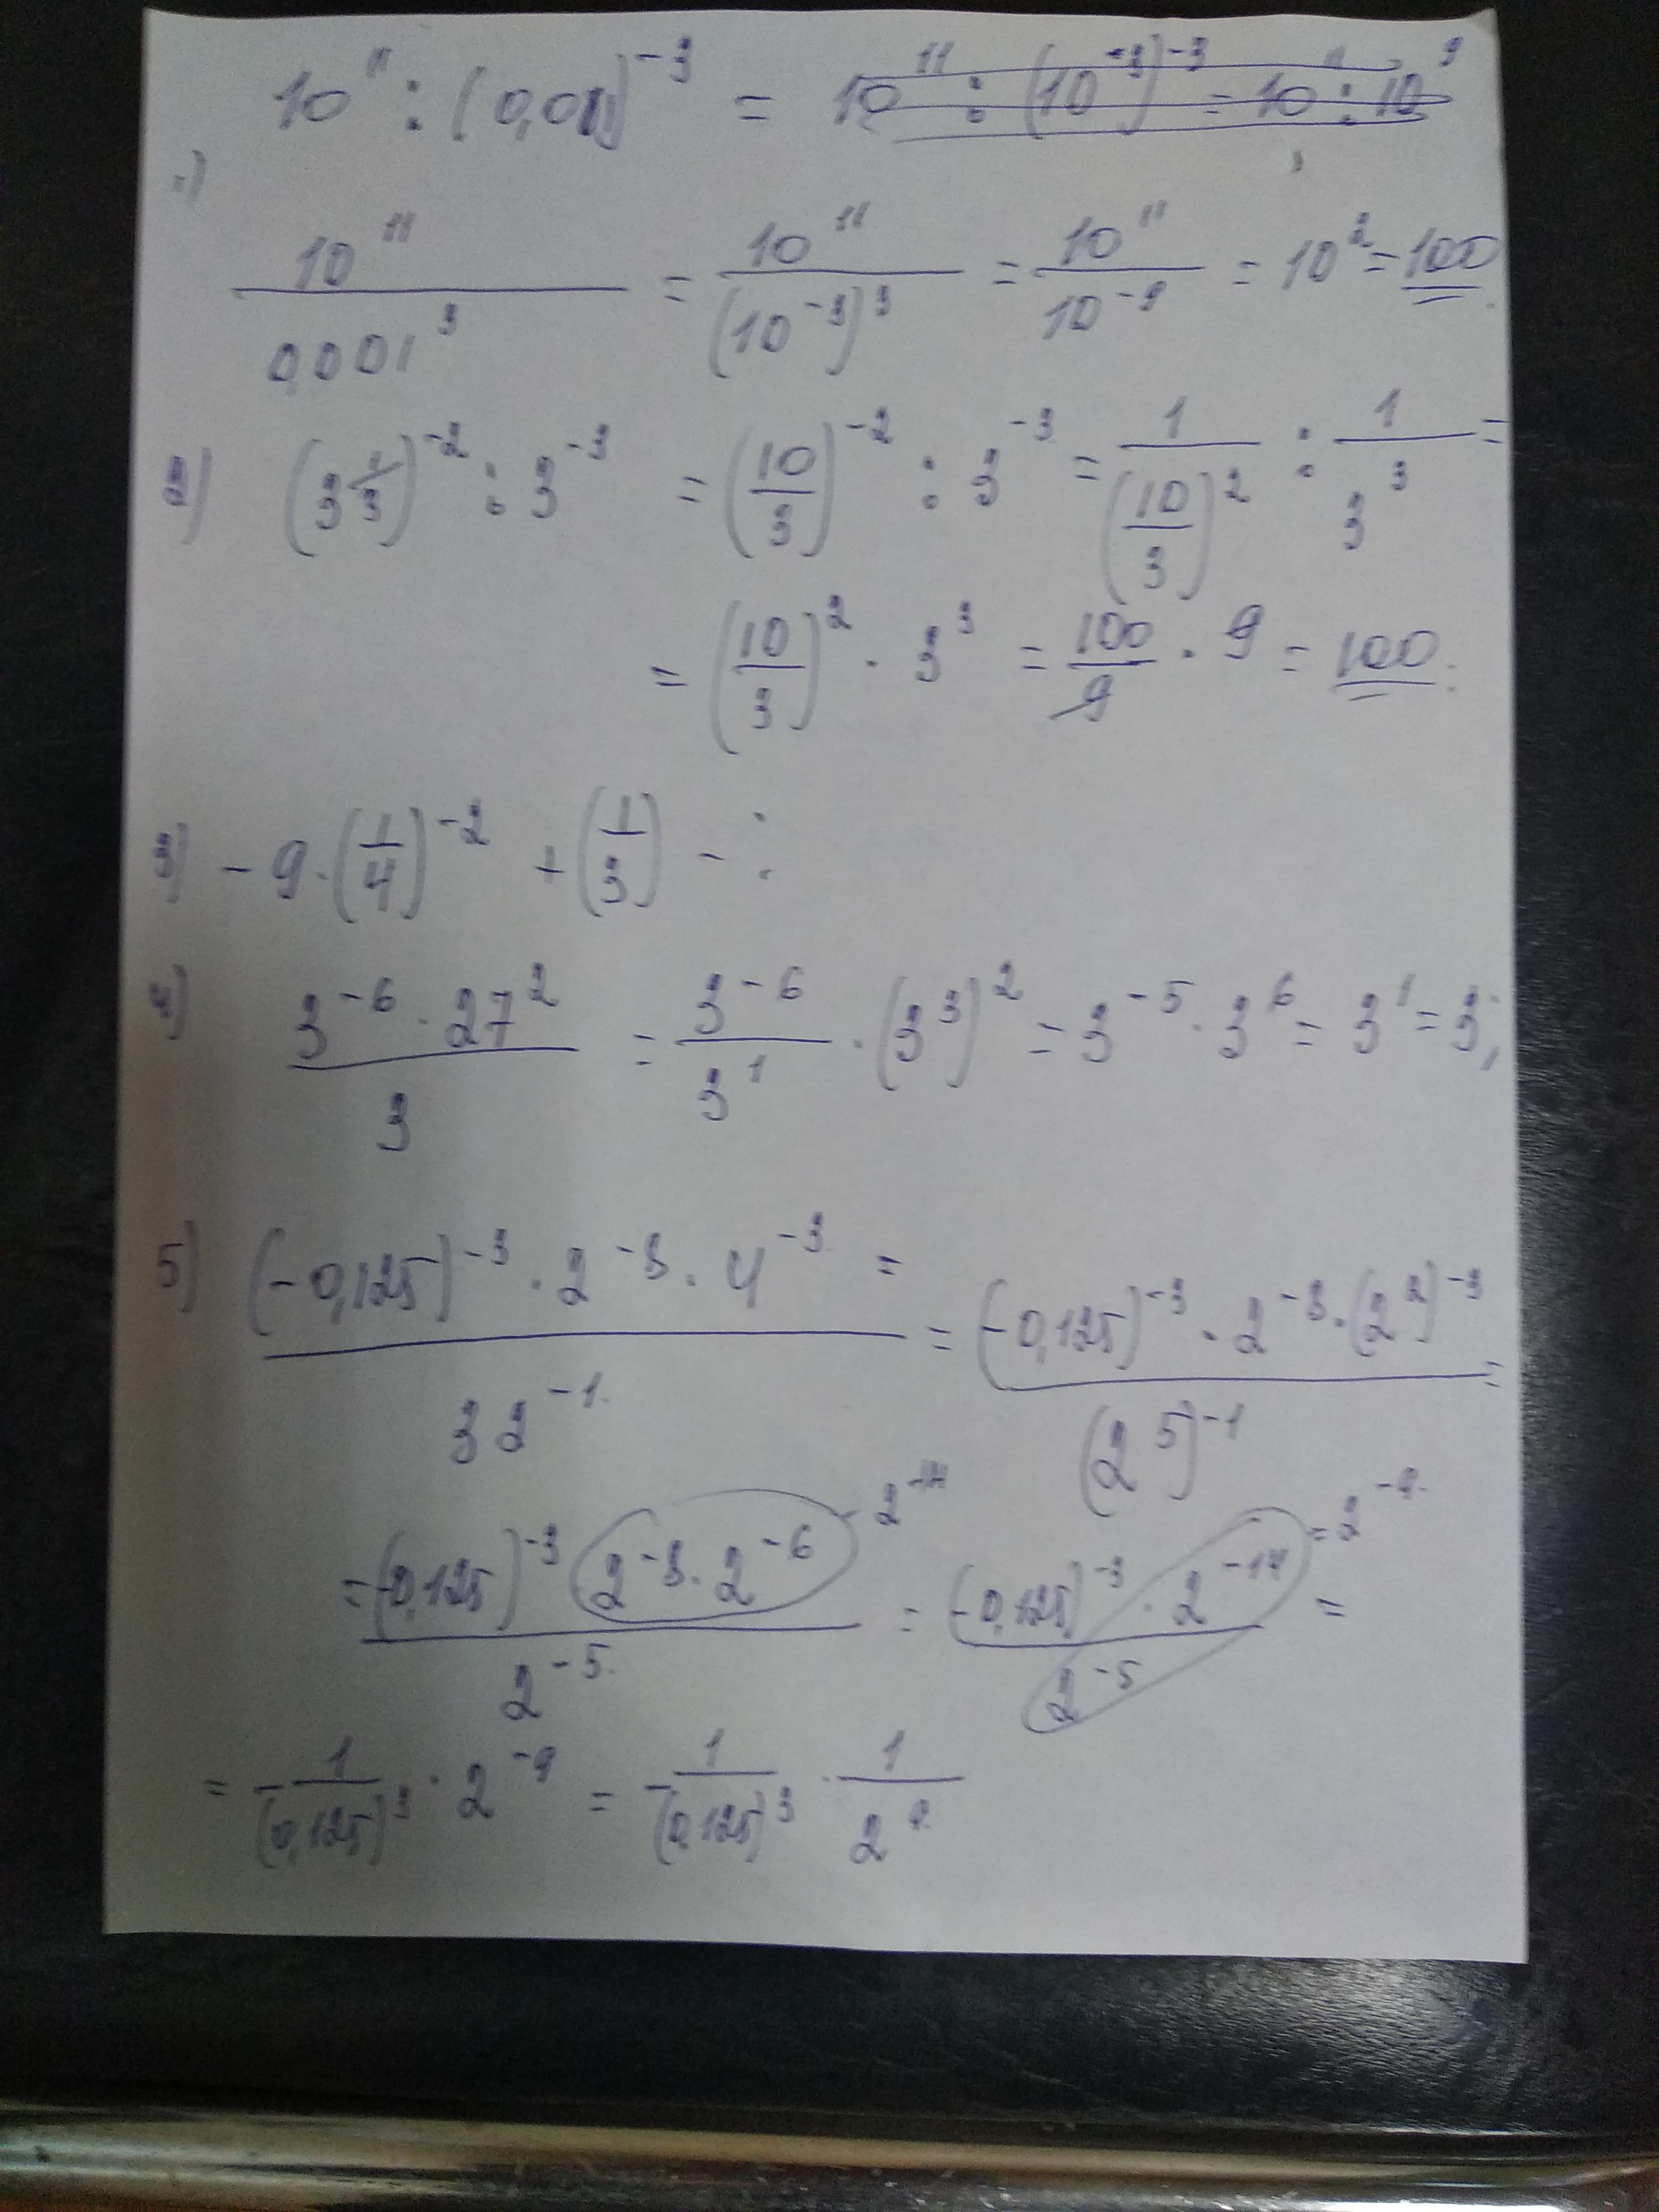 10^11 : (0,01)^-3 = 10^11 : (10^-3)^-3 = 10^11 : 10^9
1) 10^11 / 0,001^3 = 10^11 / (10^-3)^3 = 10^11 / 10^-9 = 10^2 = 100
2) (3 1/3)^-2 : 3^-3 = (10/3)^-2 : 3^-3 = 1/(10/3)^2 : 1/3^3 =
= (10/3)^2 · 3^3 = 100/9 · 9 = 100.
3) - 9 · (1/4)^-2 + (1/3) - :
4) 3^-6 · 27^2 / 3 = 3^-6 / 3^1 · (3^3)^2 = 3^-5 · 3^6 = 3^1 = 3;
5) (-0,125)^-3 · 2^-8 · 4^-3 / 32^-1 = (-0,125)^-3 · 2^-8 · (2^2)^-3 / (2^5)^-1 =
= (-0,125)^-3 2^-8 · 2^-6 / 2^-5 = (-0,125)^-3 · 2^-14 / 2^-5 = 2^-9 =
= - 1/(0,125)^3 · 2^-9 = - 1/(0,125)^3 · 1/2^9